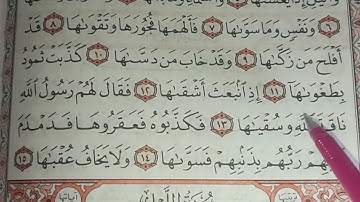 وَنَفْسٍ وَمَا سَوَّىٰهَا ٧ فَأَلْهَمَهَا فُجُورَهَا وَتَقْوَىٰهَا ٨ قَدْ
أَفْلَحَ مَن زَكَّىٰهَا ٩ وَقَدْ خَابَ مَن دَسَّىٰهَا ١٠ كَذَّبَتْ ثَمُودُ
بِطَغْوَىٰهَا ١١ إِذِ ٱنۢبَعَثَ أَشْقَىٰهَا ١٢ فَقَالَ لَهُمْ رَسُولُ ٱللَّهِ
ٱللَّهِ وَسُقْيَٰهَا ١٣ فَكَذَّبُوهُ فَعَقَرُوهَا فَدَمْدَمَ
رَبُّهُم بِذَنۢبِهِمْ فَسَوَّىٰهَا ١٤ وَلَا يَخَافُ عُقْبَٰهَا ١٥